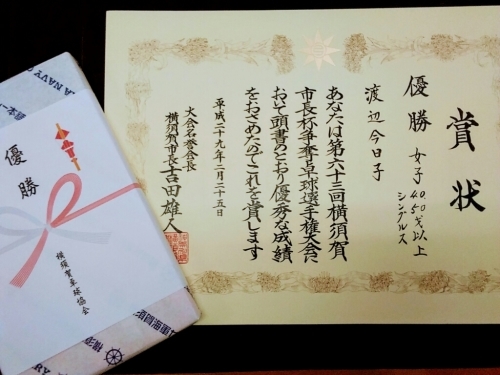 賞状
優勝 女子40.50才以上
シングルス
渡辺今日子
あなたは第六十三回横須賀
市長杯争奪卓球選手権大会に
おいて頭書のとおり優秀な成績
をおさめたのでこれを賞します
平成二十九年二月二十五日
大会名誉会長
横須賀市長吉田雄人
優勝
横須賀卓球協会
A NAVY